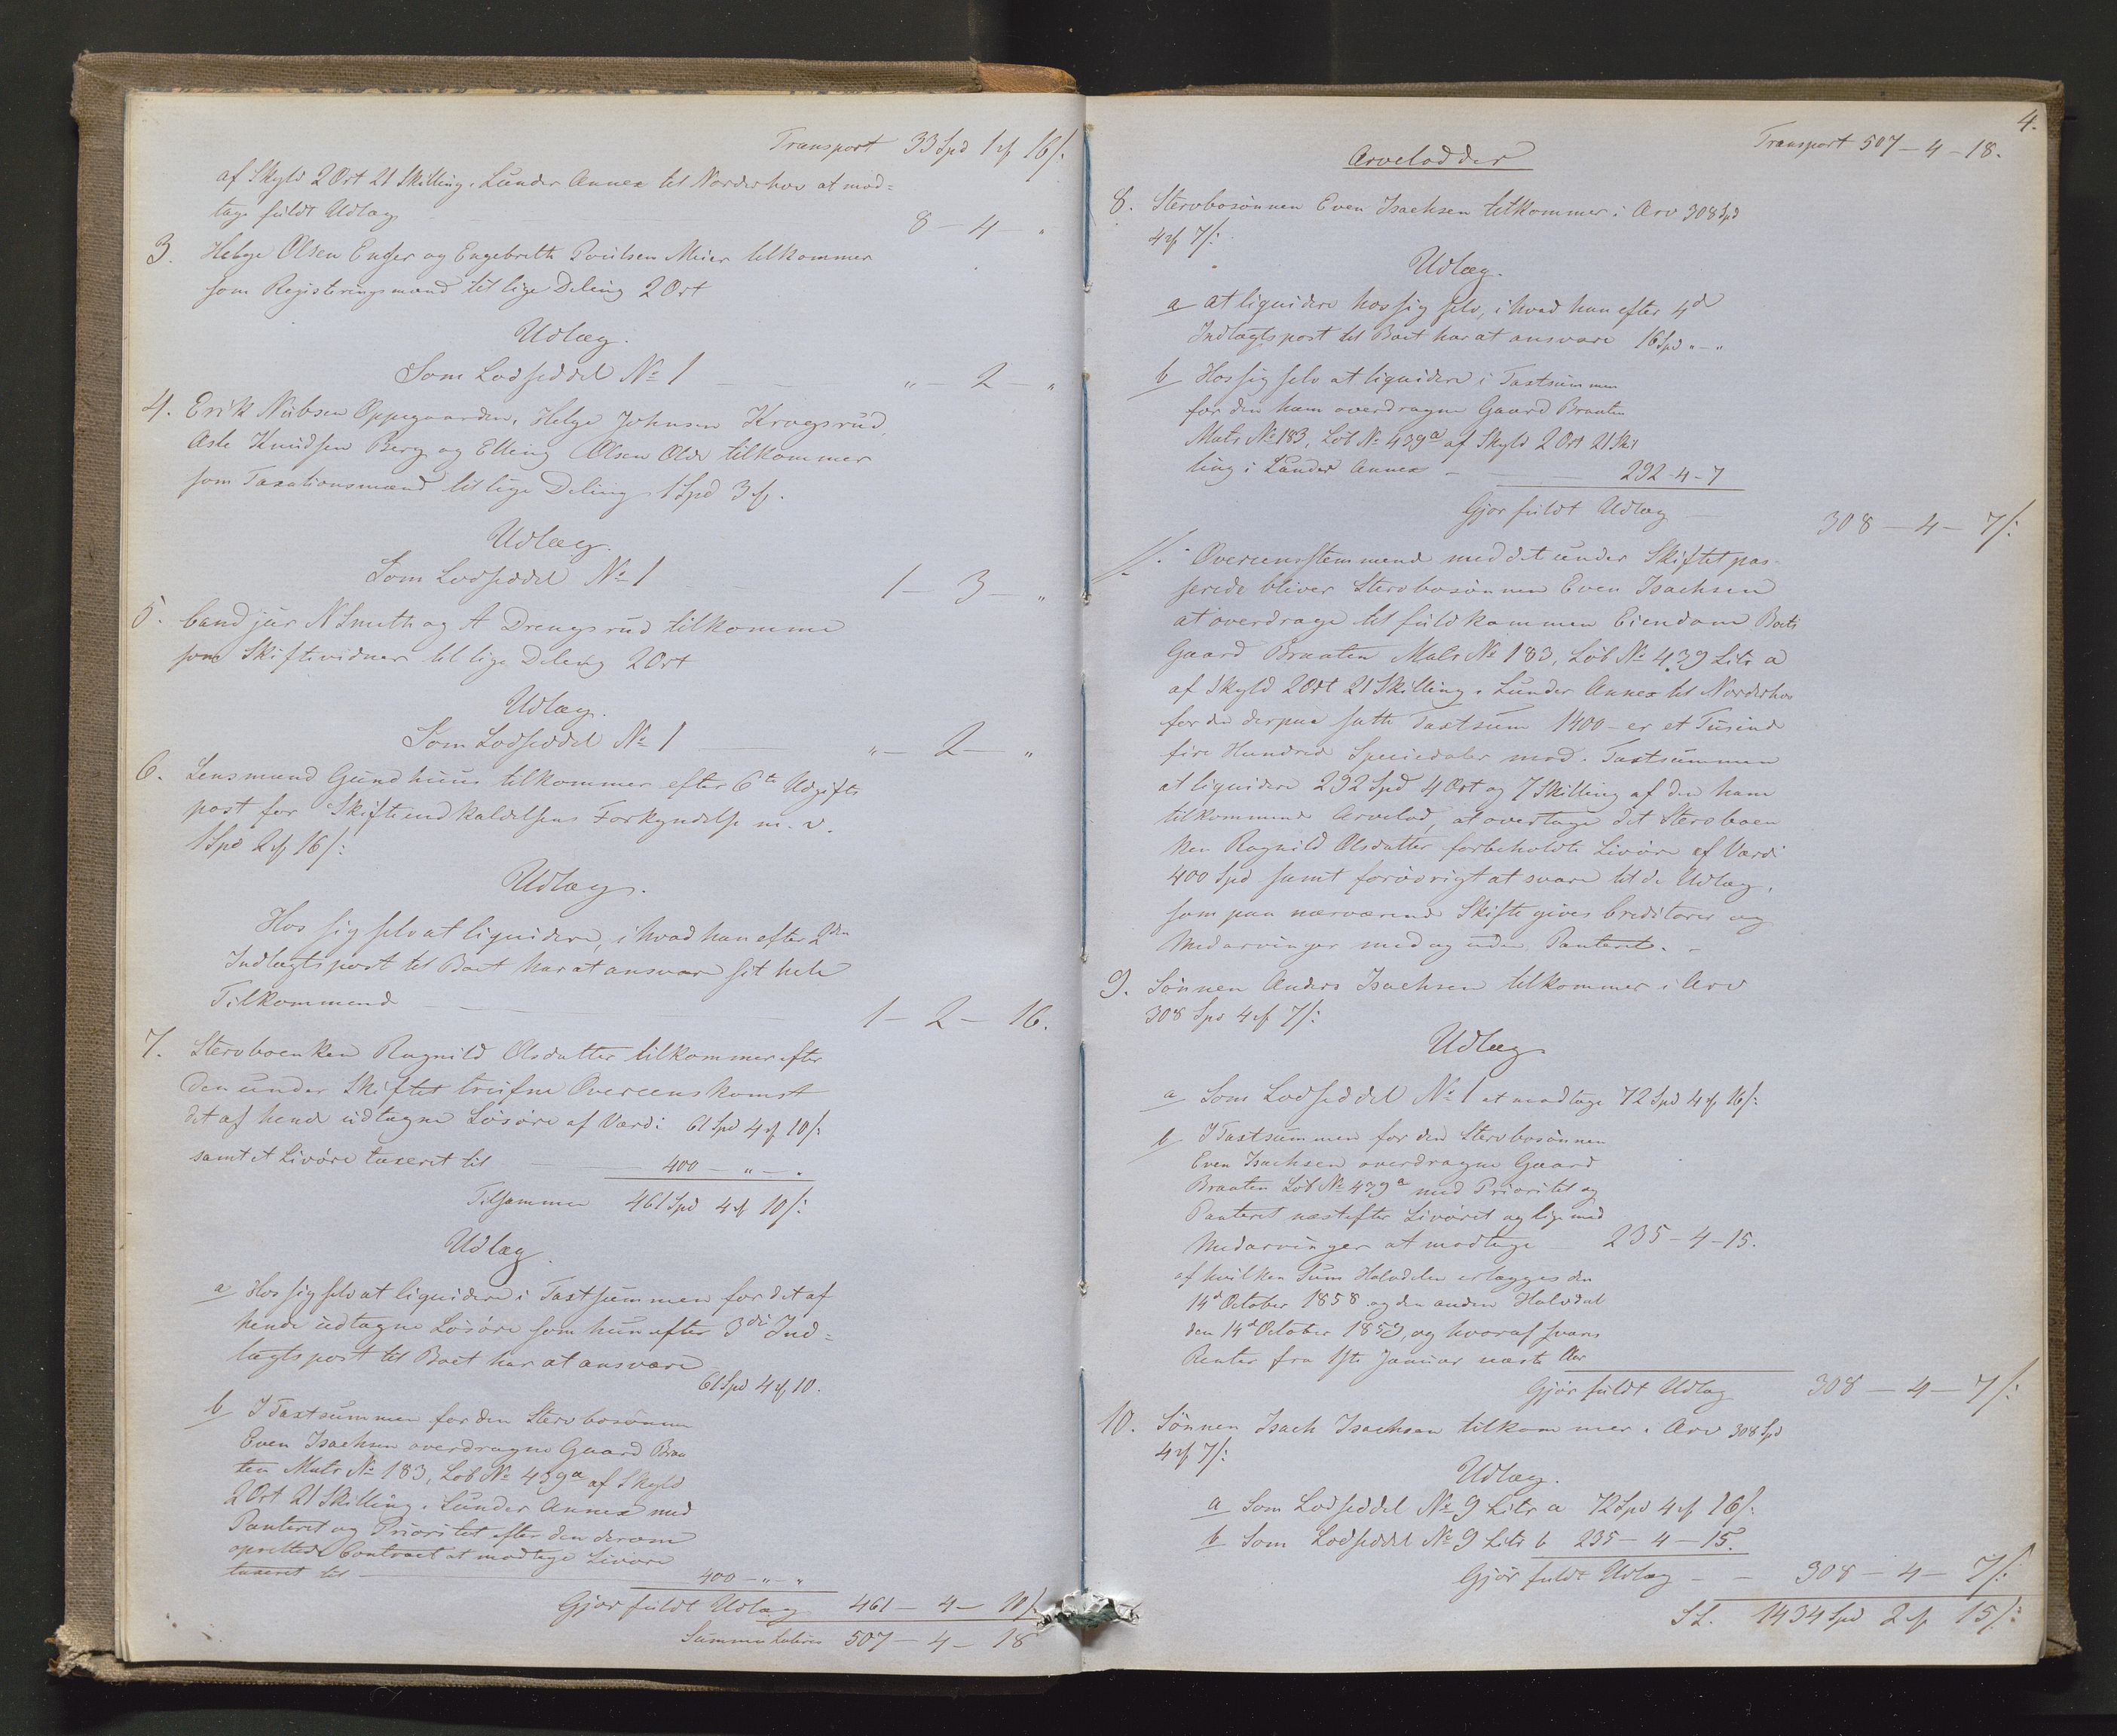 Transport 33 Spd 1 ℔ 16/:
af Skyld 2 Ort 21 Skilling i Lunder Annex til Norderhov at mod=
tage fuldt Udlæg 8 — 4 — "
3. Helge Olsen Enger og Engebreth Poulsen Meier tilkommer
som Registeringsmænd til lige Deling 2 Ort
Udlæg.
Som Lodseddel No 1 — — " — 2 — "
4. Erik Oppegaarden, Helge Johnsen Kragsrud,
Asle Knudsen Berg og Elling Olsen tilkommer
som Taxationsmænd til lige Deling 1 Spd 3 ℔.
Udlæg.
Som Lodseddel No 1 1 — 3 — "
5. Cand jur N Smith og A Drengsrud tilkomme
som Skiftevidner til lige Deling 2 Ort
Udlæg.
Som Lodseddel No 1 — " — 2 — "
6. Lensmand Gundhuus tilkommer efter 6te Udgifts
post for Skifteindkaldelsens Forkyndelse m. v.
1 Spd 2 ℔ 16/:
Udlæg.
Hos sig selv at liquidere, i hvad han efter 2den
Indtægtspost til Boet har at ansvare sit hele
Tilkommend — 1 — 2 — 16.
7. Stervboenken Ragnild Olsdatter tilkommer efter
den under Skiftet trufne Overeenskomst
det af hende udtagne Løsøre af Værdi 61 Spd 4 ℔ 10/:
samt et Livøre taxeret til — 400 — " — "
Tilsammen 461 Spd 4 ℔ 10/:
Udlæg
a Hos sig selv at liquidere i Taxtsummen for det af
hende udtagne Løsøre som hun efter 3die Ind=
tægtspost til Boet har at ansvare
61 Spd 4 ℔ 10.
b I Taxtsummen for den Stervbosønnen
Even Isachsen overdragne Gaard Braa
ten Matr No 183, Løb No 439a af Skyld
2 Ort 21 Skilling i Lunder Annex med
Panteret og Prioritet efter den derom
oprettede Contract at modtage Livøre
taxeret til — 400 — " — "
Gjør fuldt Udlæg 461 — 4 — 10/:
Summa lateris 507 — 4 — 18
4.
Transport 507 — 4 — 18.
Arvelodder
8. Stervbosønnen Even Isachsen tilkommer i Arv 308 Spd
4 ℔ 7/:
Udlæg.
a at liquidere hos sig selv, i hvad han efter 4de
Indtægtspost til Boet har at ansvare 16 Spd " — "
b Hos sig selv at liquidere i Taxtsummen
for den ham overdragne Gaard Braaten
Matr No 183, Løb No 439a af Skyld 2 Ort 21 Skil
ling i Lunder Annex — 292 - 4 - 7
Gjør fuldt Udlæg — 308 — 4 — 7/:
Overensstemmende med det under Skiftet pas-
serede bliver Stervbosønnen Even Isachsen
at overdrage til fuldkommen Eiendom Boets
Gaard Braaten Matr No 183, Løb No 439 Litr a
af Skyld 2 Ort 21 Skilling i Lunder Annex til Norderhov
for den derpaa satte Taxtsum 1400 - er et Tusind
fire Hundred Speciedaler mod i Taxtsummen
at liquidere 292 Spd 4 Ort og 7 Skilling af den ham
tilkommende Arvelod, at overtage det Stervboen
ken Ragnild Olsdatter forbeholdte Livøre af Værdi
400 Spd samt forøvrigt at svare til de Udlæg,
som paa nærværende Skifte gives Creditorer og
Medarvinger med og uden Panteret. —
9. Sønnen Anders Isachsen tilkommer i Arv
308 Spd 4 ℔ 7/:
Udlæg
a Som Lodseddel No 1 at modtage 72 Spd 4 ℔ 16/:
b I Taxtsummen for den Stervbosønnen
Even Isachsen overdragne Gaard
Braaten Løb No 439a med Prioritet og
Panteret næstefter Livøret og lige med
Medarvinger at modtage — 235 — 4 — 15.
af hvilken Sum Halvdelen erlægges den
14d October 1858 og den anden Halvdel
den 14d October 1859, og hvoraf svares
Renter fra 1ste Januar næste Aar
Gjør fuldt Udlæg 308 — 4 — 7/:
10. Sønnen Isach Isachsen tilkommer i Arv 308 Spd
4 ℔ 7/:
Udlæg.
a Som Lodseddel No 9 Litr a 72 Spd 4 ℔ 16/:
b Som Lodseddel No 9 Litr b 235 — 4 — 15.
Gjør fuldt Udlæg — — 308 — 4 — 7/:
S L. 1434 Spd 2 ℔ 15/: